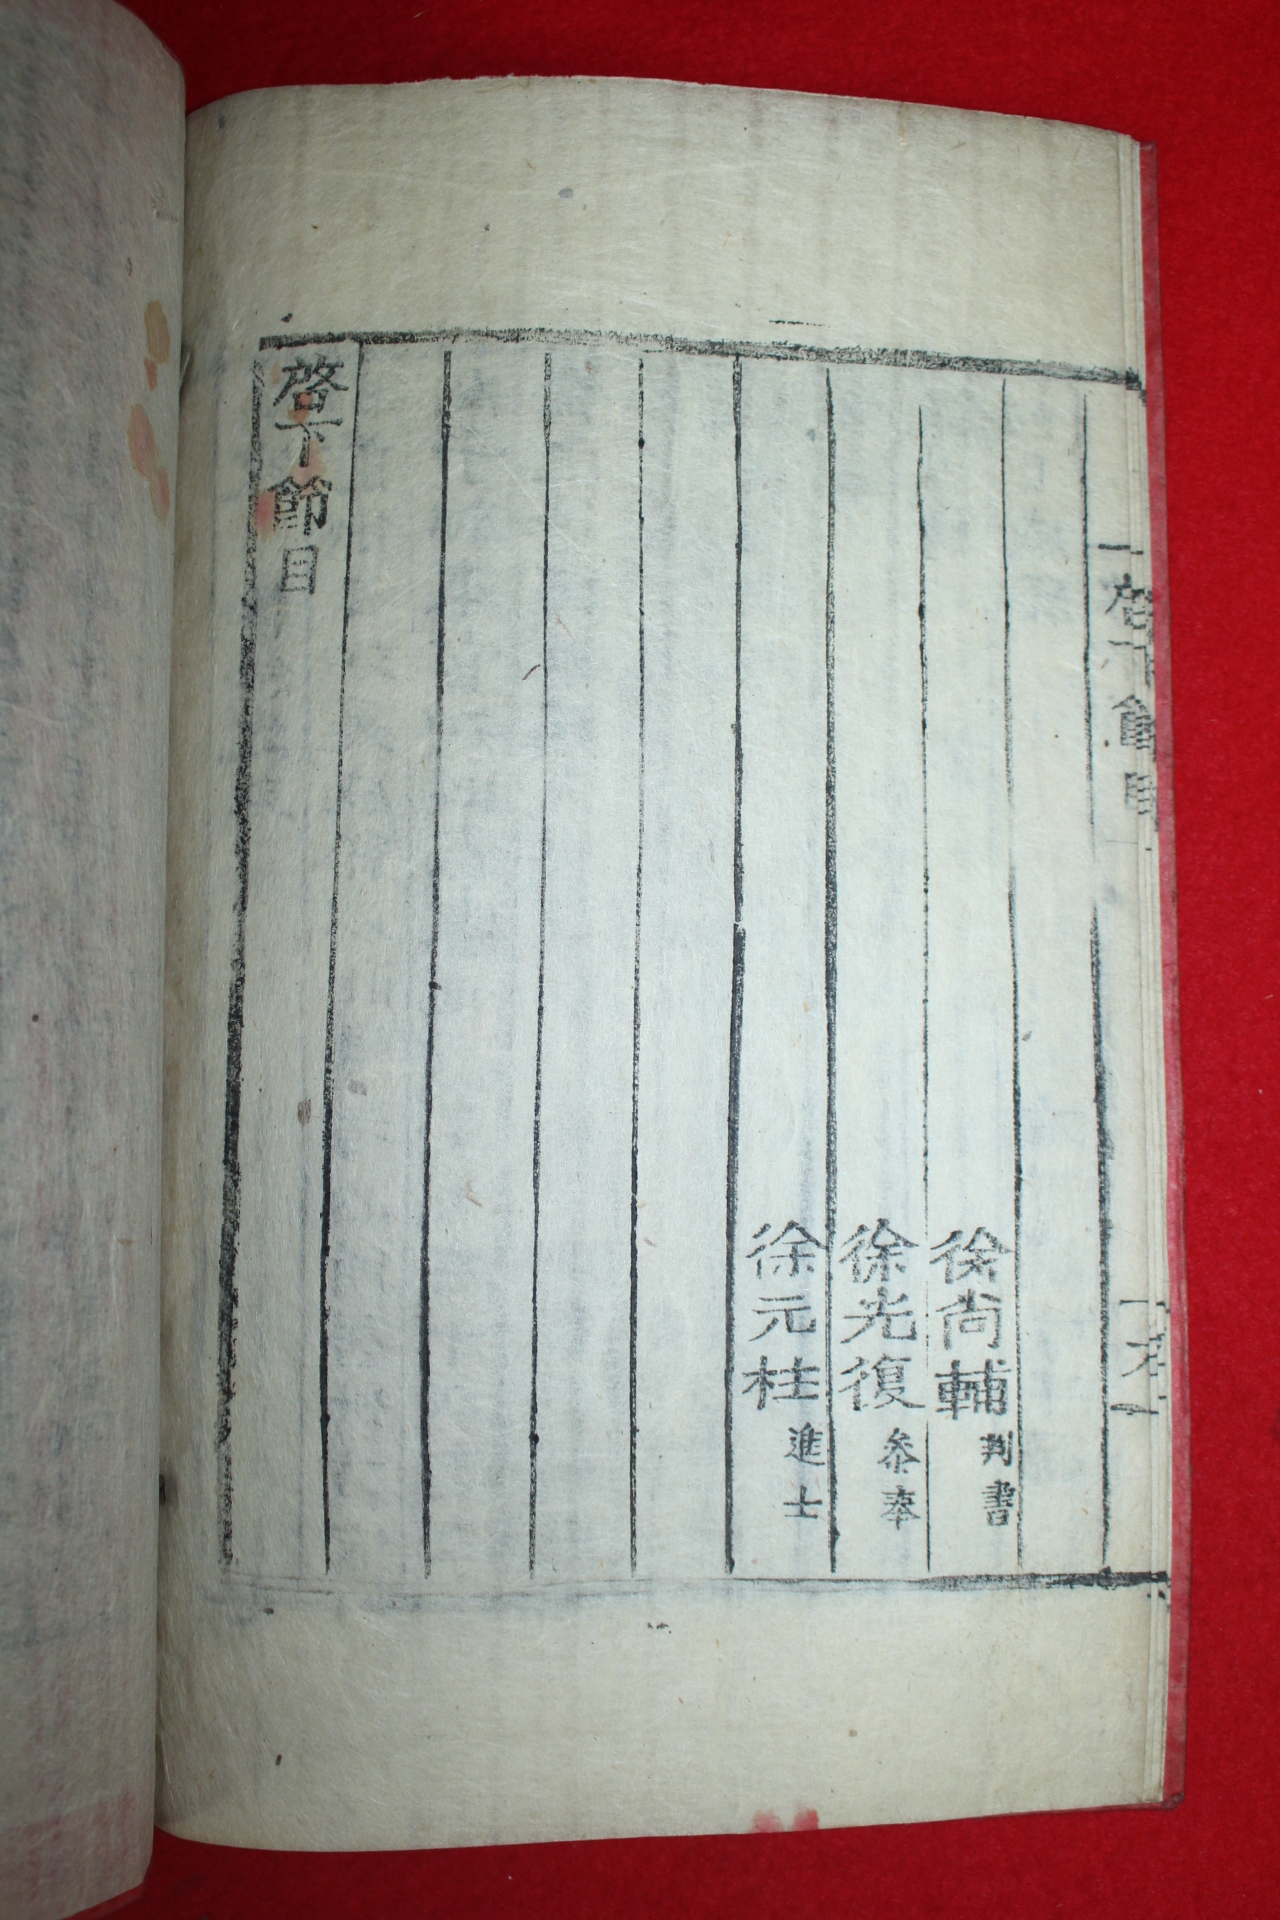 啓下節目
徐尚輔 判書
徐光復 叅奉
徐元柱 進士
啓下節目